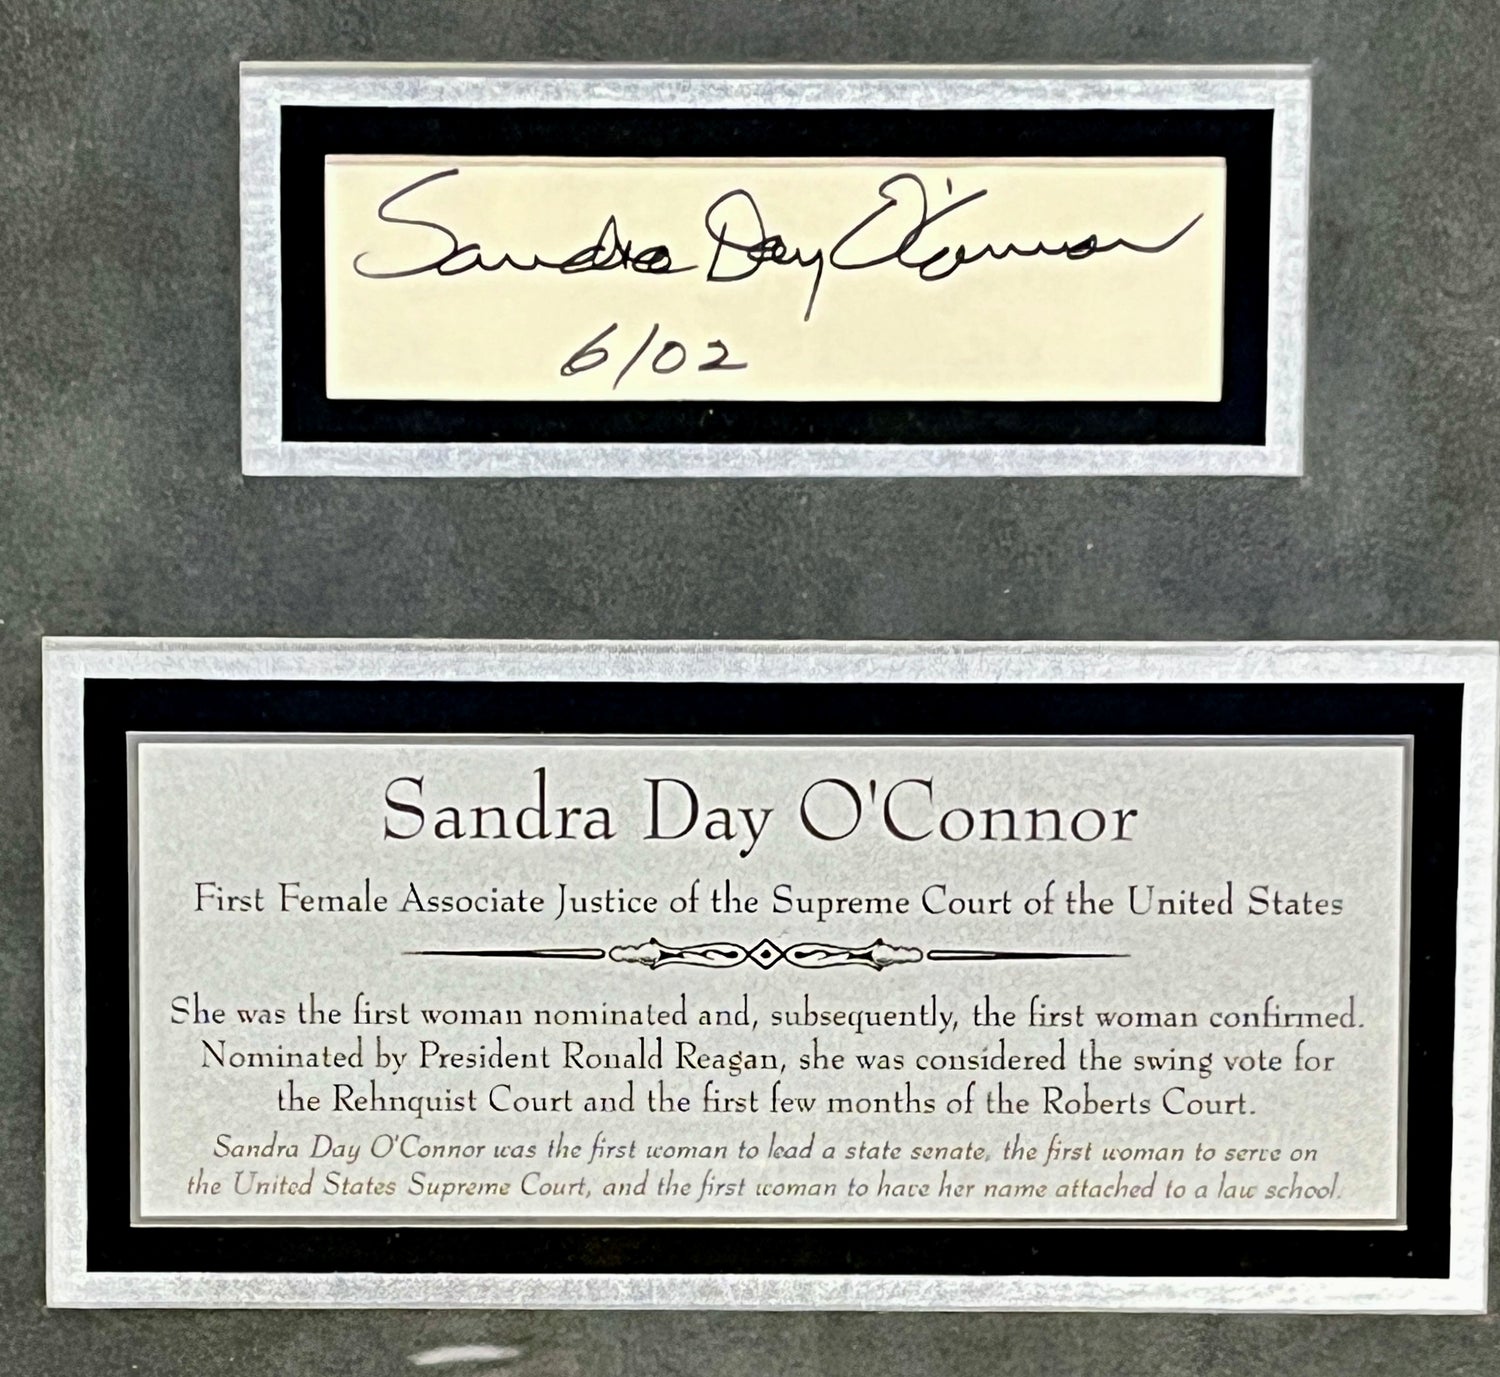 Sandra Day O'Connor
6/02
Sandra Day O'Connor
First Female Associate Justice of the Supreme Court of the United States
She was the first woman nominated and, subsequently, the first woman confirmed.
Nominated by President Ronald Reagan, she was considered the swing vote for
the Rehnquist Court and the first few months of the Roberts Court.
Sandra Day O'Connor was the first woman to lead a state senate, the first woman to serve on
the United States Supreme Court, and the first woman to have her name attached to a law school.